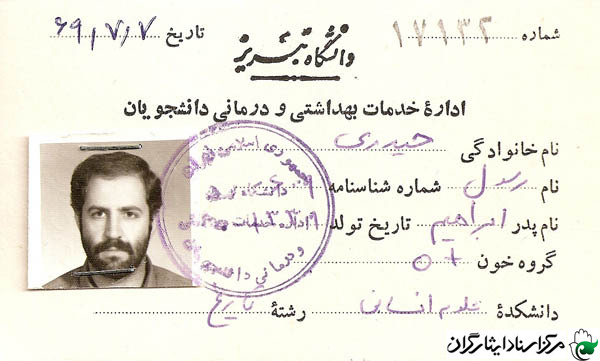 شماره ۱۷۱۳۲
تاریخ ۶۹٫۷٫۷
دانشگاه تبریز
ادارهٔ خدمات بهداشتی و درمانی دانشجویان
نام خانوادگی حیدری
نام رسول شماره شناسنامه
نام پدر ابراهیم تاریخ تولد
گروه خون O+
دانشکدهٔ علوم انسانی رشتهٔ تاریخ
جمهوری اسلامی ایران
دانشگاه تبریز
اداره خدمات بهداشتی
و درمانی دانشجویان
مرکز اسناد ایثارگران